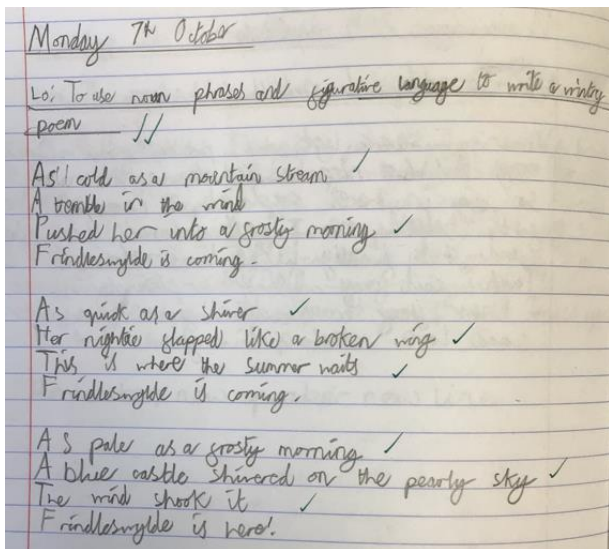 Monday 7th October
Lo: To use noun phrases and figurative language to write a wintry
poem
As cold as a mountain stream
A tremble in the wind
Pushed her into a frosty morning
Frindleswylde is coming.
As quick as a shiver
Her nightie flapped like a broken wing
This is where the summer waits
Frindleswylde is coming.
As pale as a frosty morning
A blue castle shivered on the pearly sky
The wind shook it
Frindleswylde is here!